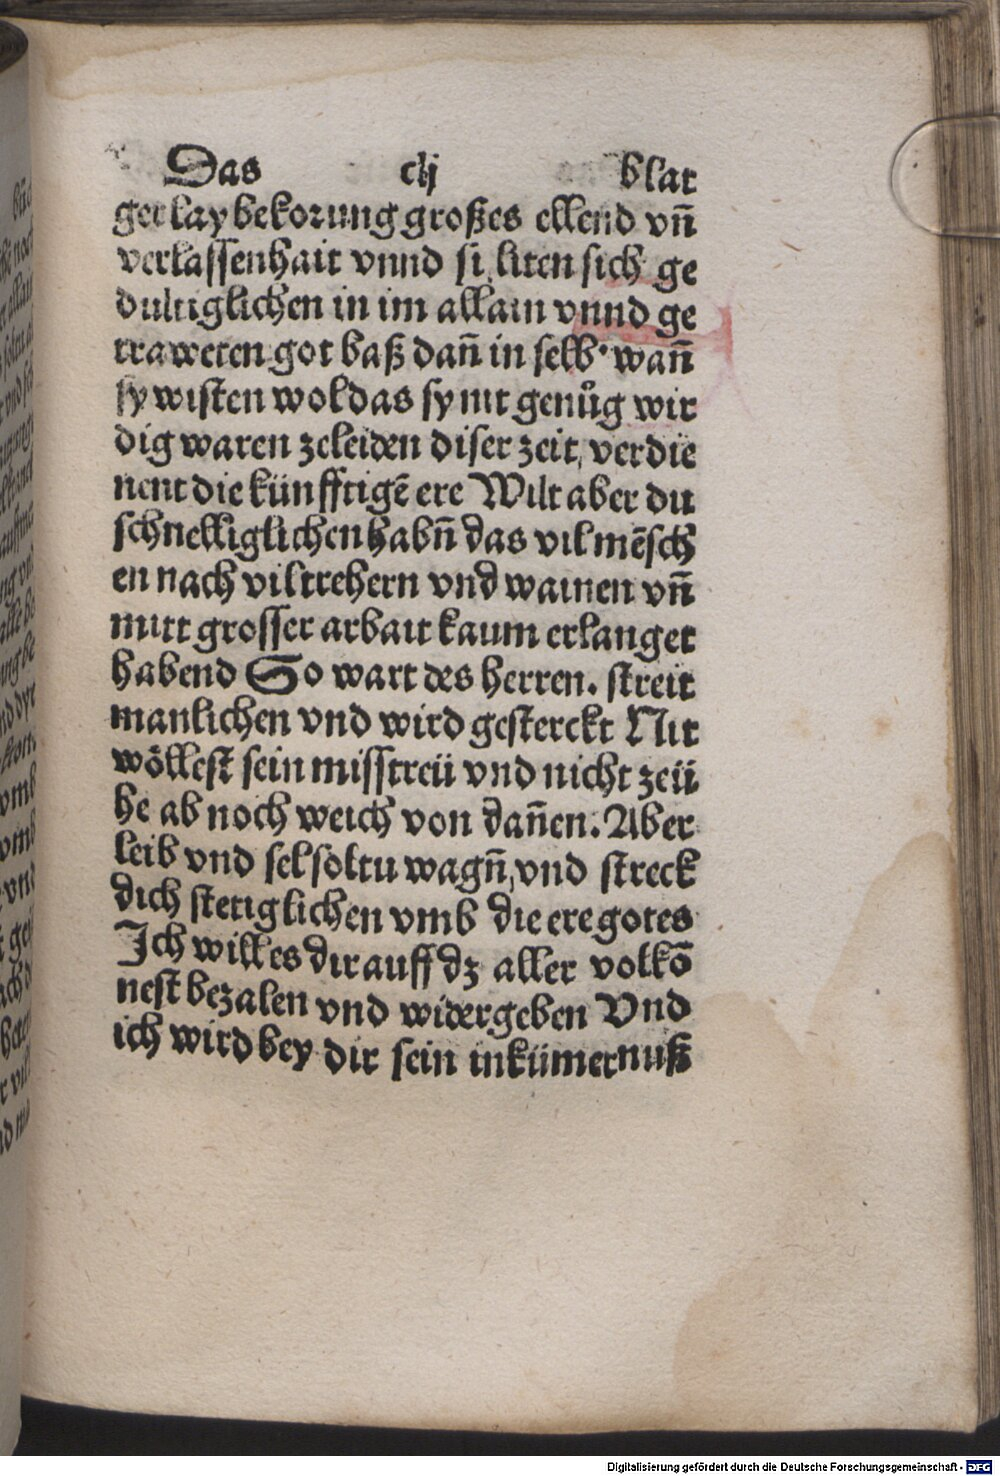 Das clj blat
gerlay bekorung großes ellend vñ
verlassenhait vnnd si liten sich ge
dultiglichen in im allain vnnd ge
traweten got baß dañ in selb· wañ
sy wisten wol das sy nit genůg wir
dig waren zeleiden diser zeit, verdie
nent die künfftigē ere Wilt aber du
schnelliglichen habñ das vil mēsch
en nach vil trehern vnd wainen vñ
mitt grosser arbait kaum erlanget
habend So wart des herren. streit
manlichen vnd wird gesterckt Nit
wöllest sein misstreü vnd nicht zeü
he ab noch weich von dañen. Aber
leib vnd sel soltu wagñ, vnd streck
dich stetiglichen vmb die ere gotes
Ich will es dir auff dz aller volkō
nest bezalen vnd widergeben Vnd
ich wird bey dir sein in kümernuß
Digitalisierung gefördert durch die Deutsche Forschungsgemeinschaft - DFG